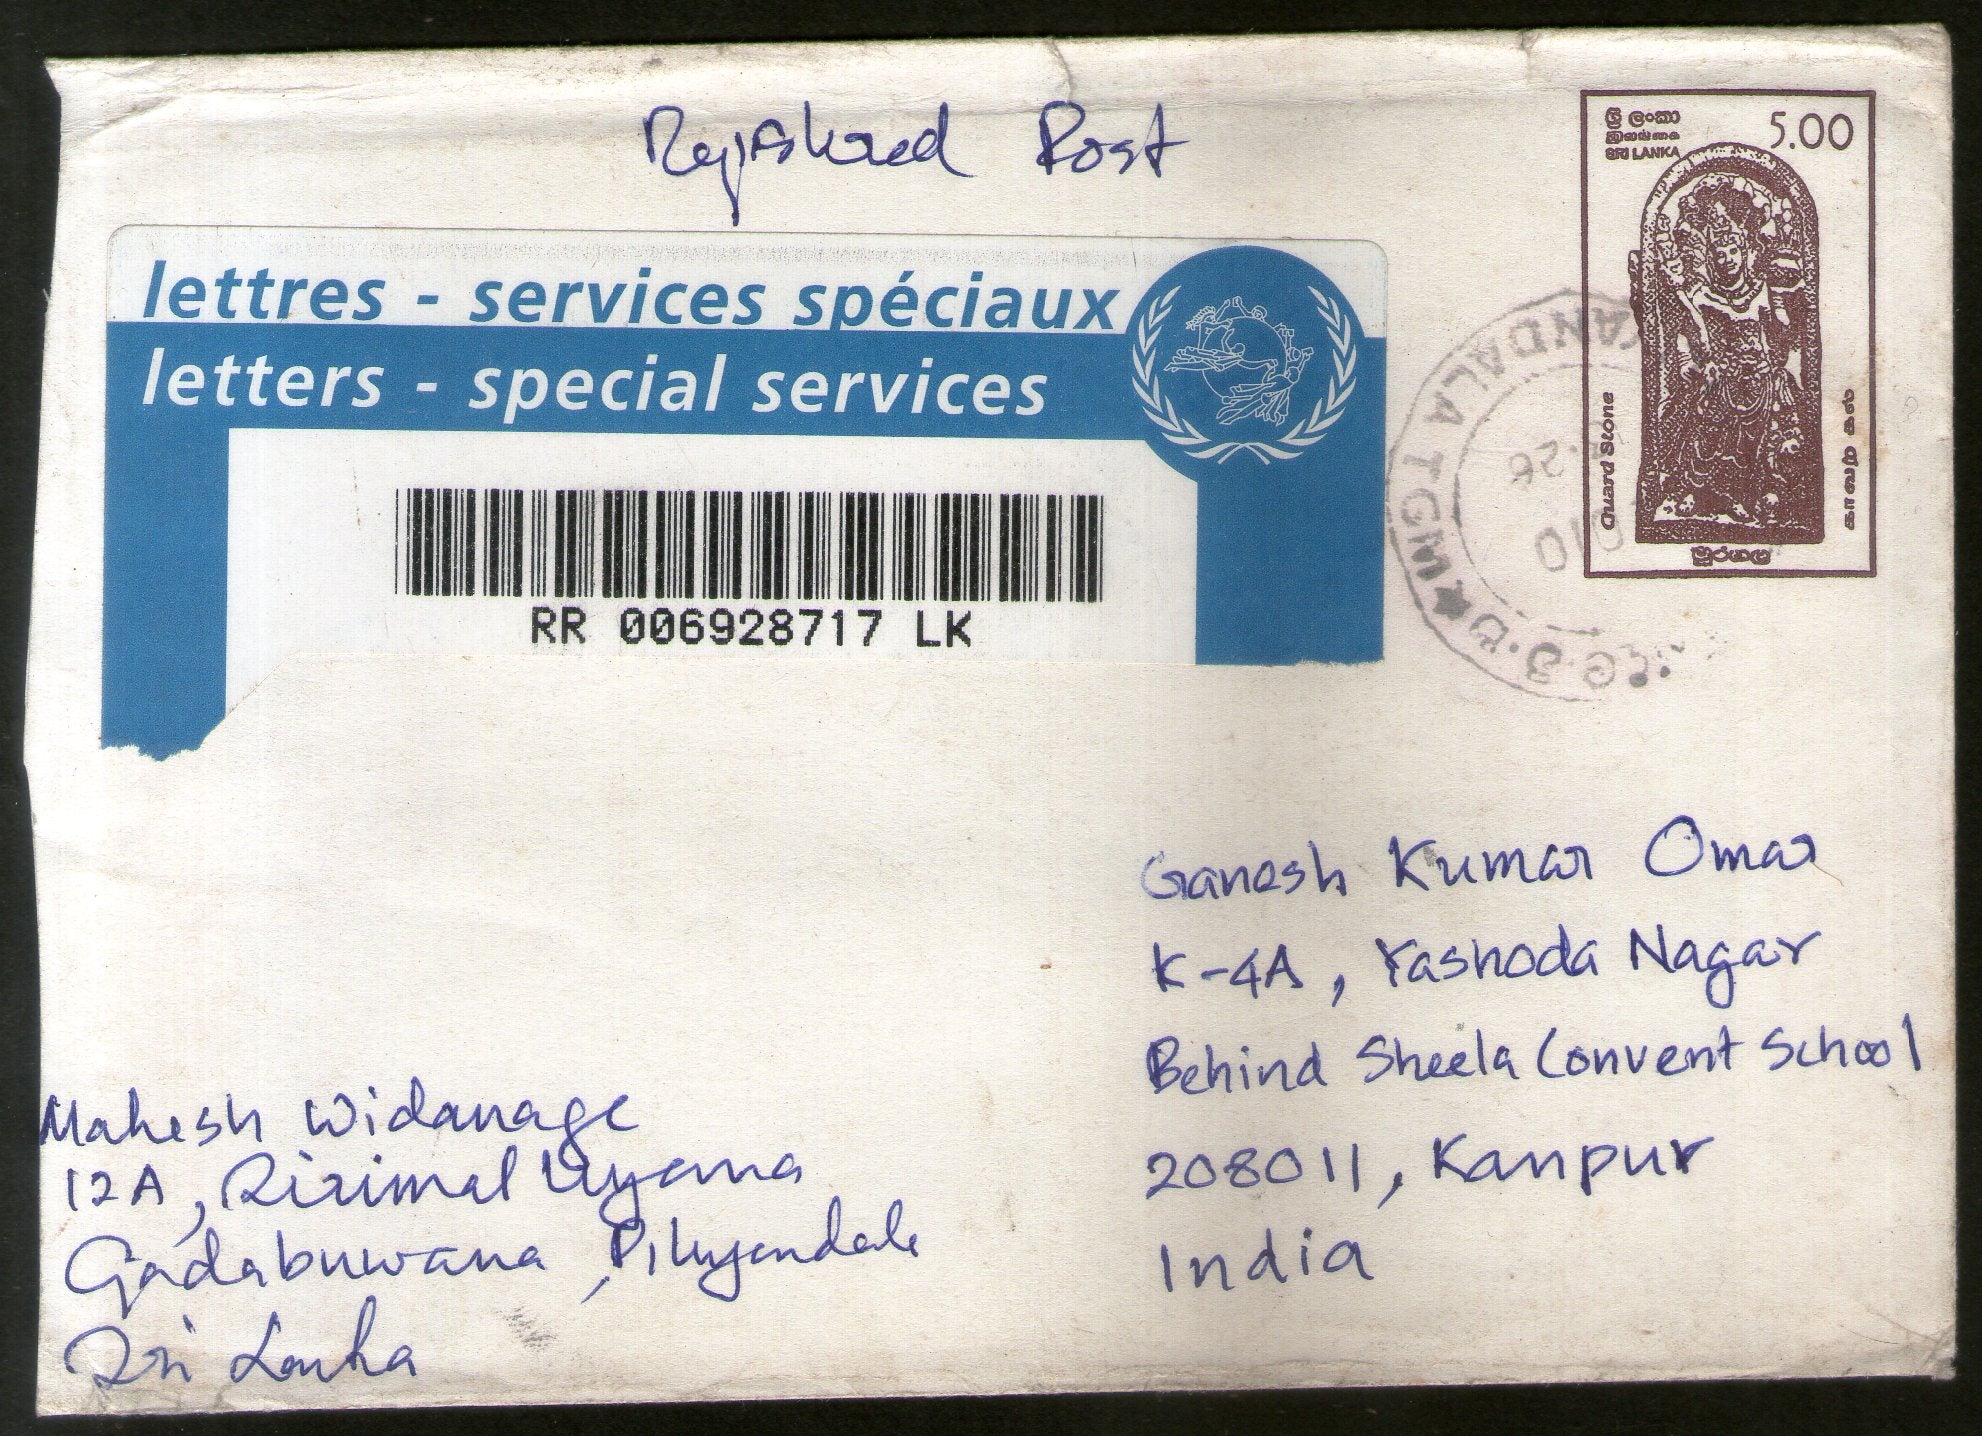 Registered Post
ශ්‍රී ලංකා
இலங்கை
SRI LANKA
5.00
Guard Stone
காவற் கல்
මුරගල
lettres - services spéciaux
letters - special services
RR 006928717 LK
ANDALA TGM
26
010
Ganesh Kumar Omar
K-4A, Yashoda Nagar
Behind Sheela Convent School
208011, Kanpur
India
Mahesh Widanage
12A, Sirimal Uyana
Godabuwana, Piliyandala
Sri Lanka